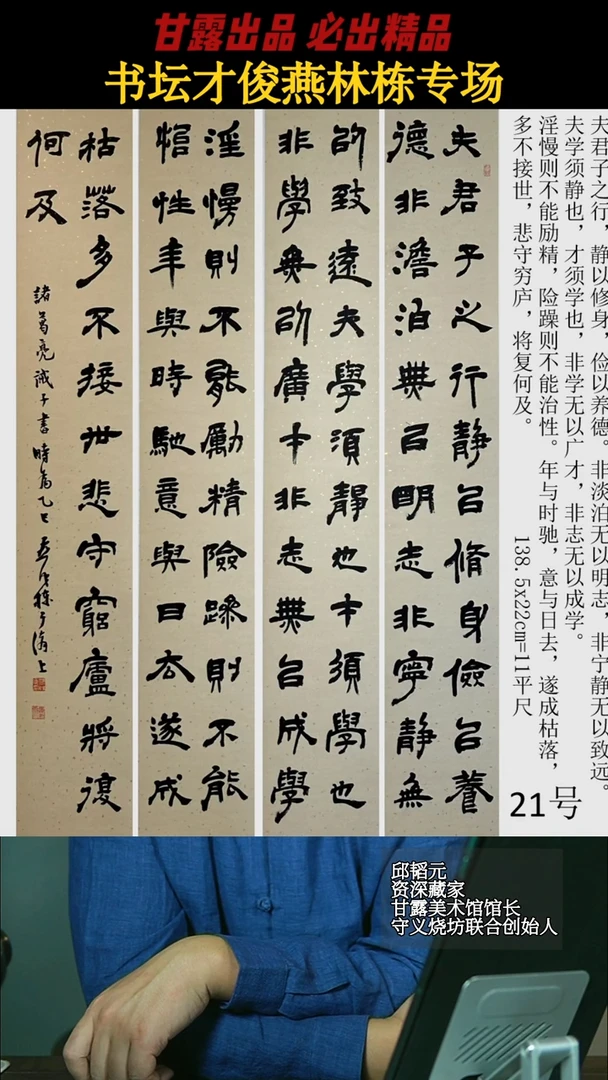 甘露出品 必出精品
书坛才俊燕林栋专场
夫君子之行，静以修身，俭以养德。非淡泊无以明志，非宁静无以致远。
夫学须静也，才须学也，非学无以广才，非志无以成学。
淫慢则不能励精，险躁则不能治性。年与时驰，意与日去，遂成枯落，
多不接世，悲守穷庐，将复何及。
138.5x22cm=11平尺
21号
夫君子之行静㠯脩身儉㠯養
德非澹泊無㠯明志非寧静無
㕥致遠夫學須靜也才須學也
非學無㕥廣才非志無㠯成學
淫慢則不能勵精險躁則不能
怡性年與時馳意與日去遂成
枯落多不接世悲守窮廬將復
何及
諸葛亮誡子書時為乙巳燕林棟於滬上
邱韬元
资深藏家
甘露美术馆馆长
守义烧坊联合创始人